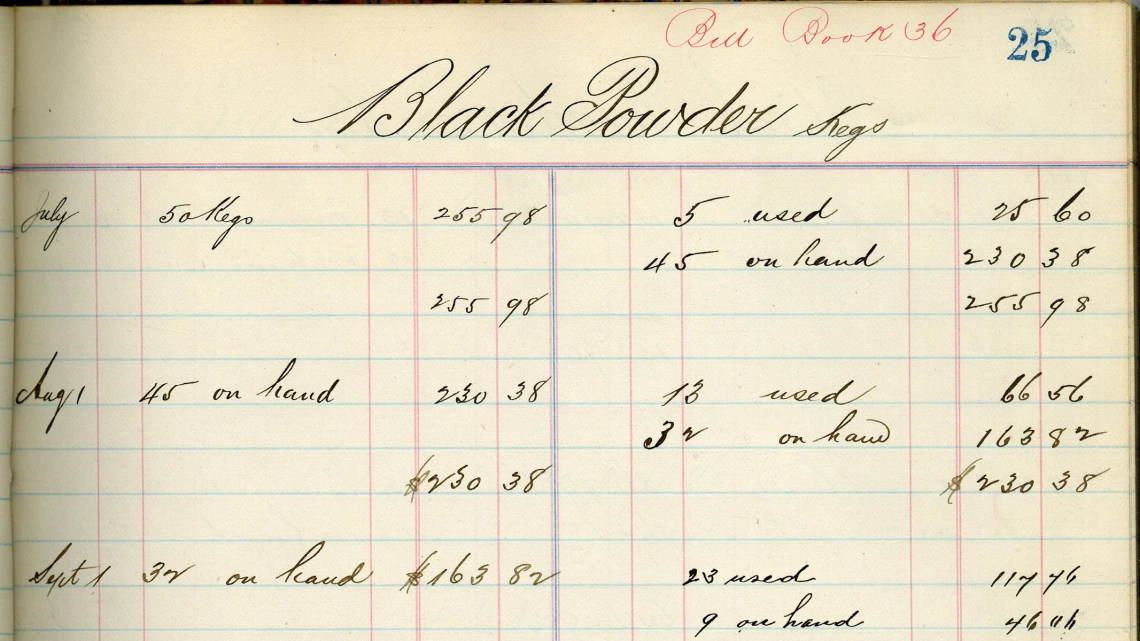 Bill Book 36 25
Black Powder Kegs
July 50 Kegs 255 98 5 used 25 60
45 on hand 230 38
255 98 255 98
Aug 1 45 on hand 230 38 13 used 66 56
32 on hand 163 82
$230 38 $230 38
Sept 1 32 on hand $163 82 23 used 117 76
9 on hand 46 06